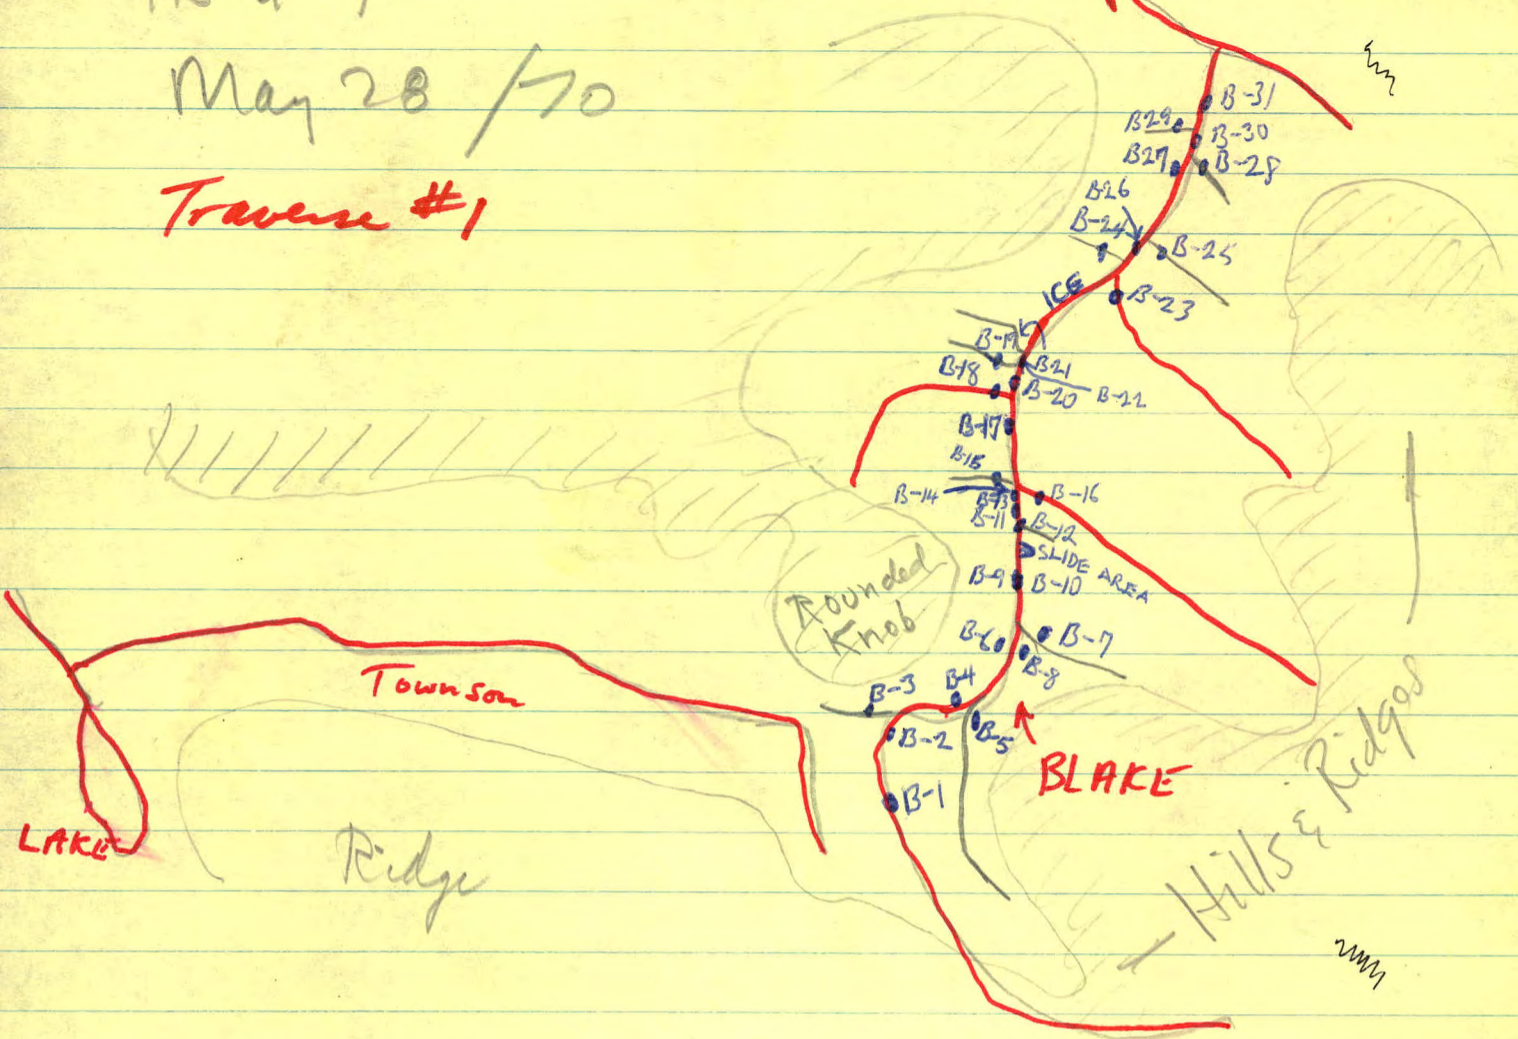 May 28/70
Traverse #1
B-31
B29
B-30
B27
B-28
B26
B-24
B-25
ICE
B-23
B-19
B21
B-18
B-20
B-22
B-17
B-15
B-14
B-13
B-16
B-11
B-12
SLIDE AREA
B-9
B-10
Rounded
Knob
B-6
B-7
B-8
Townson
B-3
B-4
B-2
B-5
BLAKE
B-1
LAKE
Ridge
Hills & Ridges